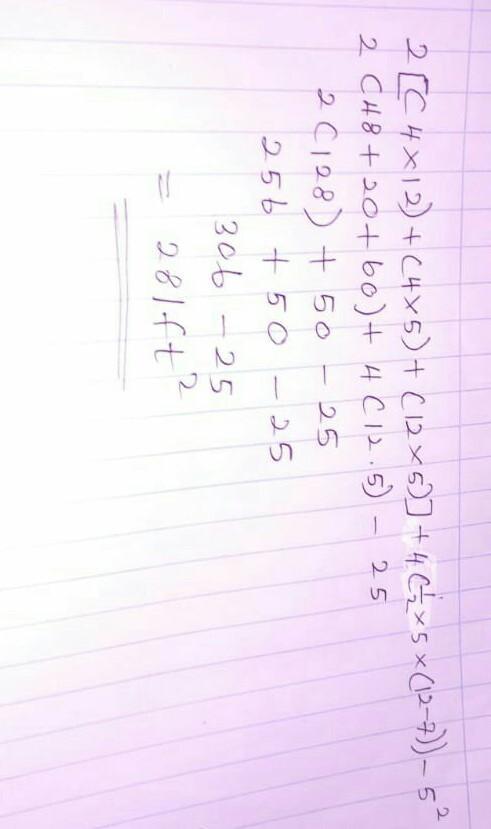 2[(4×12)+(4×5)+(12×5)]+4(½×5×(12-7))-5²
2(48+20+60)+4(12.5)-25
2(128)+50-25
256+50-25
306-25
= 281ft²